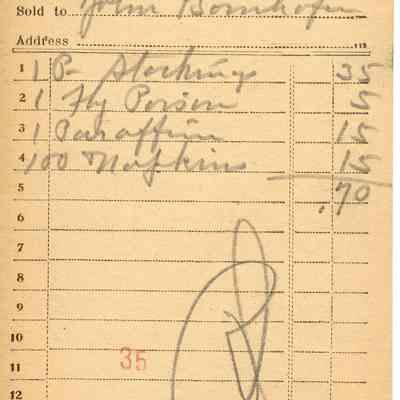 Sold to John Bornhofen
Address
1 1 Pr Stockings 35
2 1 Fly Poison 5
3 1 Paraffine 15
4 100 Napkins 15
5 .70
6
7
8
9
10
11 35
12